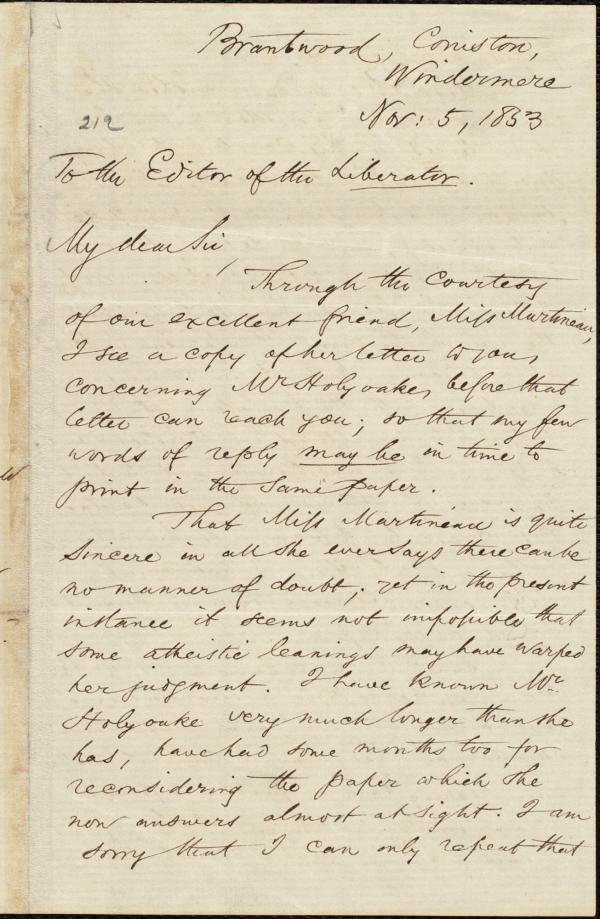 Brantwood, Coniston,
Windermere
Nov: 5, 1853
212
To the Editor of the Liberator.
My dear Sir,
Through the courtesy
of our excellent friend, Miss Martineau,
I see a copy of her letter to you,
concerning Mr Holyoake, before that
letter can reach you; so that my few
words of reply may be in time to
print in the same paper.
That Miss Martineau is quite
sincere in all she ever says there can be
no manner of doubt; yet in the present
instance it seems not impossible that
some atheistic leanings may have warped
her judgment. I have known Mr.
Holyoake very much longer than she
has, have had some months too for
reconsidering the paper which she
now answers almost at sight. I am
sorry that I can only repeat that